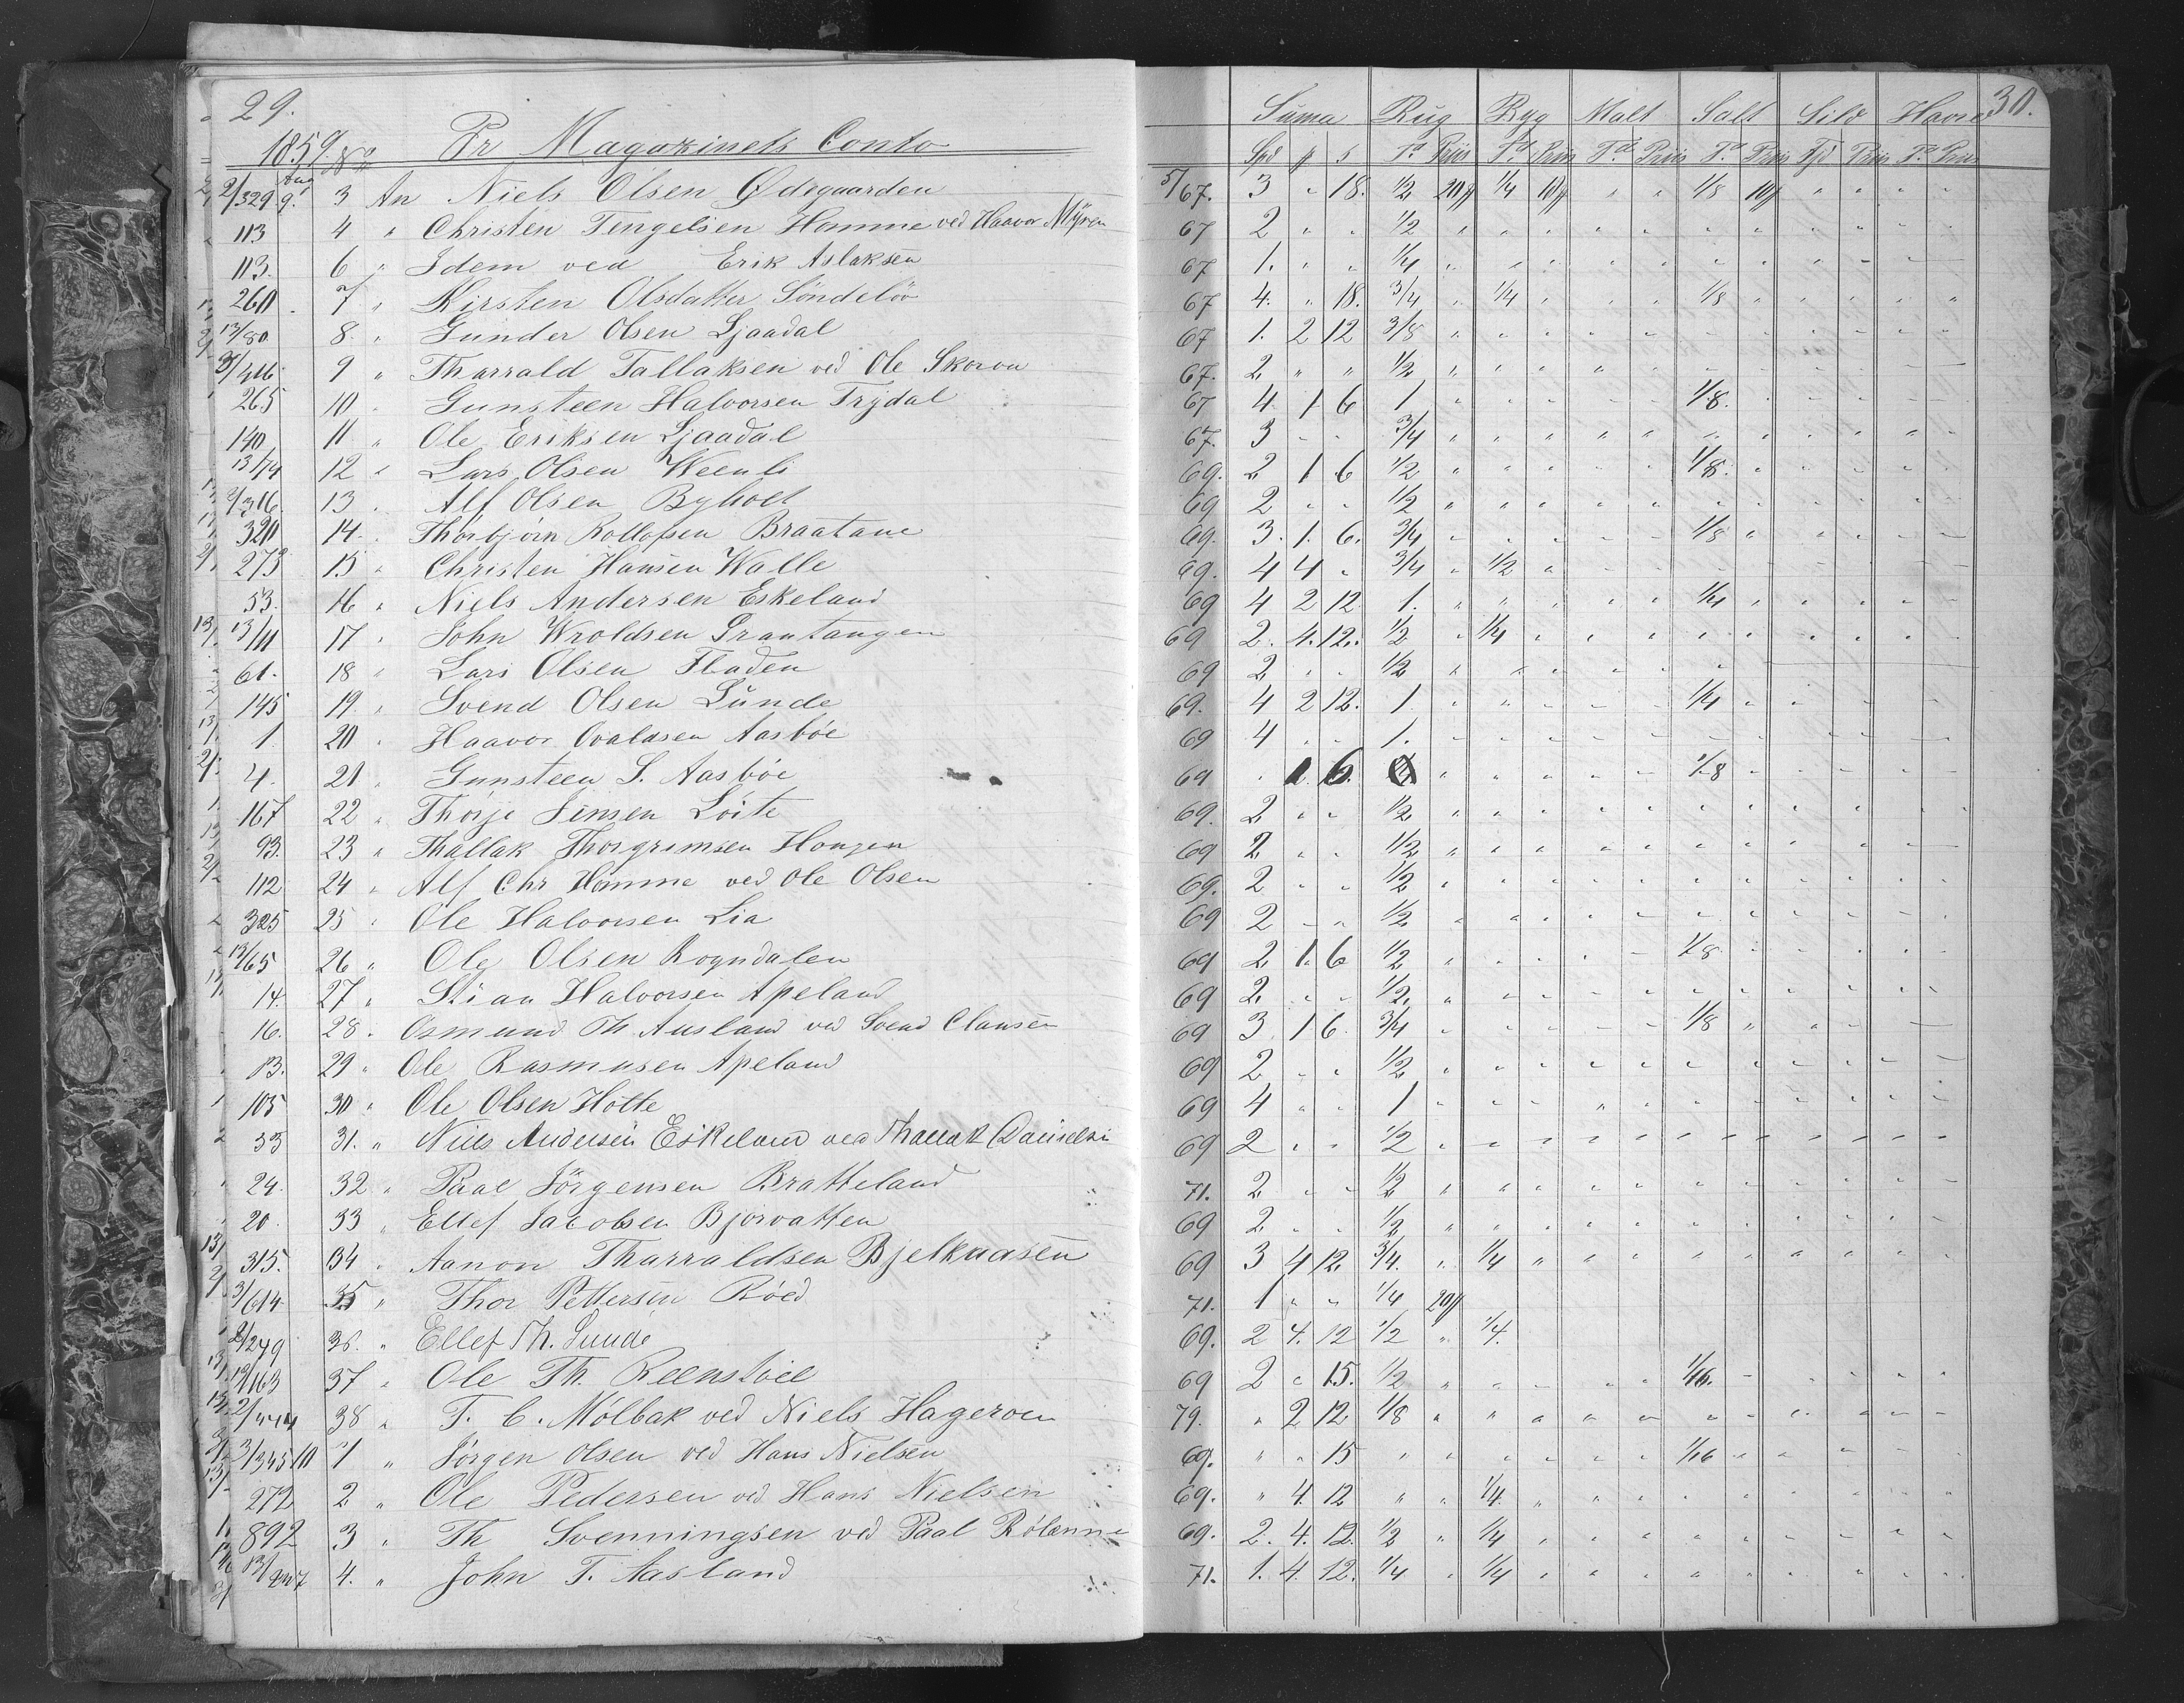 29.
1859. No Pr Magazinets Conto
2/329 Aug 9. 3 An Niels Olsen Ødegaarden
113 4 " Christen Tengelsen Homme ved Haavor Myren
113. 6 " Idem ved Erik Aslaksen
260 7 " Kirsten Olsdatter Söndelöv
13/80 8. " Gunder Olsen Ljaadal
3/416 9 " Tharrald Tallaksen ved Ole Skorou
265 10 " Gunsteen Halvorsen Trydal
140 11 " Ole Eriksen Ljaadal
13/74 12 " Lars Olsen Weenli
2/316. 13 " Alf Olsen Byholt
320 14. " Thorbjörn Rollofsen Braatane
273 15 " Christen Hansen Walle
53. 16 " Niels Andersen Eskeland
13/11 17 " John Wroldsen Grantangen
61. 18 " Lars Olsen Fladen
145 19. " Svend Olsen Lunde
1 20 " Haavor Ovaldsen Aasböe
4. 21 " Gunsteen S. Aasböe
167 22 " Thorje Jensen Löite
93. 23 " Thallak Thorgrimsen Hougen
112 24 " Alf Chr Homme ved Ole Olsen
325 25 " Ole Halvorsen Lia
13/65 26 " Ole Olsen Rogndalen
14. 27 " Stian Halvorsen Apeland
16. 28. " Osmund Th. Ausland ved Svend Clausen
13. 29 " Ole Rasmusen Apeland
105 30 " Ole Olsen Hotte
53 31. " Niels Andersen Eskeland ved Thallak Danielsen
24. 32 " Paal Jörgensen Bratteland
20 33 " Ellef Jacobsen Bjorvatten
315. 34 " Aanon Tharraldsen Bjelkaasen
3/614 35 " Thor Pettersen Röed
2/249 36. " Ellef Th. Lunde
13/163 37 " Ole Th. Reenstöel
2/444 38 " T. C. Mölbak ved Niels Hageroen
3/345 10 1 " Jörgen Olsen ved Hans Nielsen
272 2 " Ole Pedersen ved Hans Nielsen
892 3 " Th Svenningsen ved Paal Rölanne
13/247 4. " John T. Aasland
30.
Suma Rug Byg Malt Salt Sild Havre
Spd ƒ s Td Priis Td Priis Td Priis Td Priis Fjd Priis Td Priis
5/67. 3 " 18. 1/2 20ƒ 1/4 10ƒ " " 1/8 10ƒ " " " "
67 2 " " 1/2
67 1. " " 1/4
67 4. " 18. 3/4 " 1/4 " " " 1/8
67 1. 2 12 3/8
67. 2 " " 1/2
67 4 1 6 1 " " " " " 1/8.
67. 3 " " 3/4
69. 2 1 6 1/2 " " " " " 1/8.
69 2 " " 1/2
69. 3. 1. 6. 3/4 " " " " " 1/8
69. 4 4 " 3/4 " 1/2
69 4 2 12 1. " " " " " 1/4
69 2. 4. 12. 1/2 " 1/4
69 2 " " 1/2
69. 4 2 12. 1 " " " " " 1/4
69 4 " " 1.
69 " 1 6. " " " " " 1/8
69. 2 " " 1/2
69 2 " " 1/2
69. 2 " " 1/2
69 2 " " 1/2
69 2 1. 6 1/2 " " " " " 1/8
69 2. " " 1/2
69 3 1 6. 3/4 " " " " " 1/8
69 2 " " 1/2
69 4 " " 1
69 2 " " 1/2
71. 2 " " 1/2
69 2 " " 1/2
69 3 4 12. 3/4. " 1/4
71. 1 " " 1/4 20ƒ
69. 2 4. 12 1/2 " 1/4.
69 2 " 15. 1/2 " " " " " 1/16.
79. " 2 12 1/8
69. " " 15 " " " " " " 1/16
69. " 4. 12 " " 1/4.
69. 2. 4. 12. 1/2 " 1/4
71. 1. 4. 12. 1/4 " 1/4